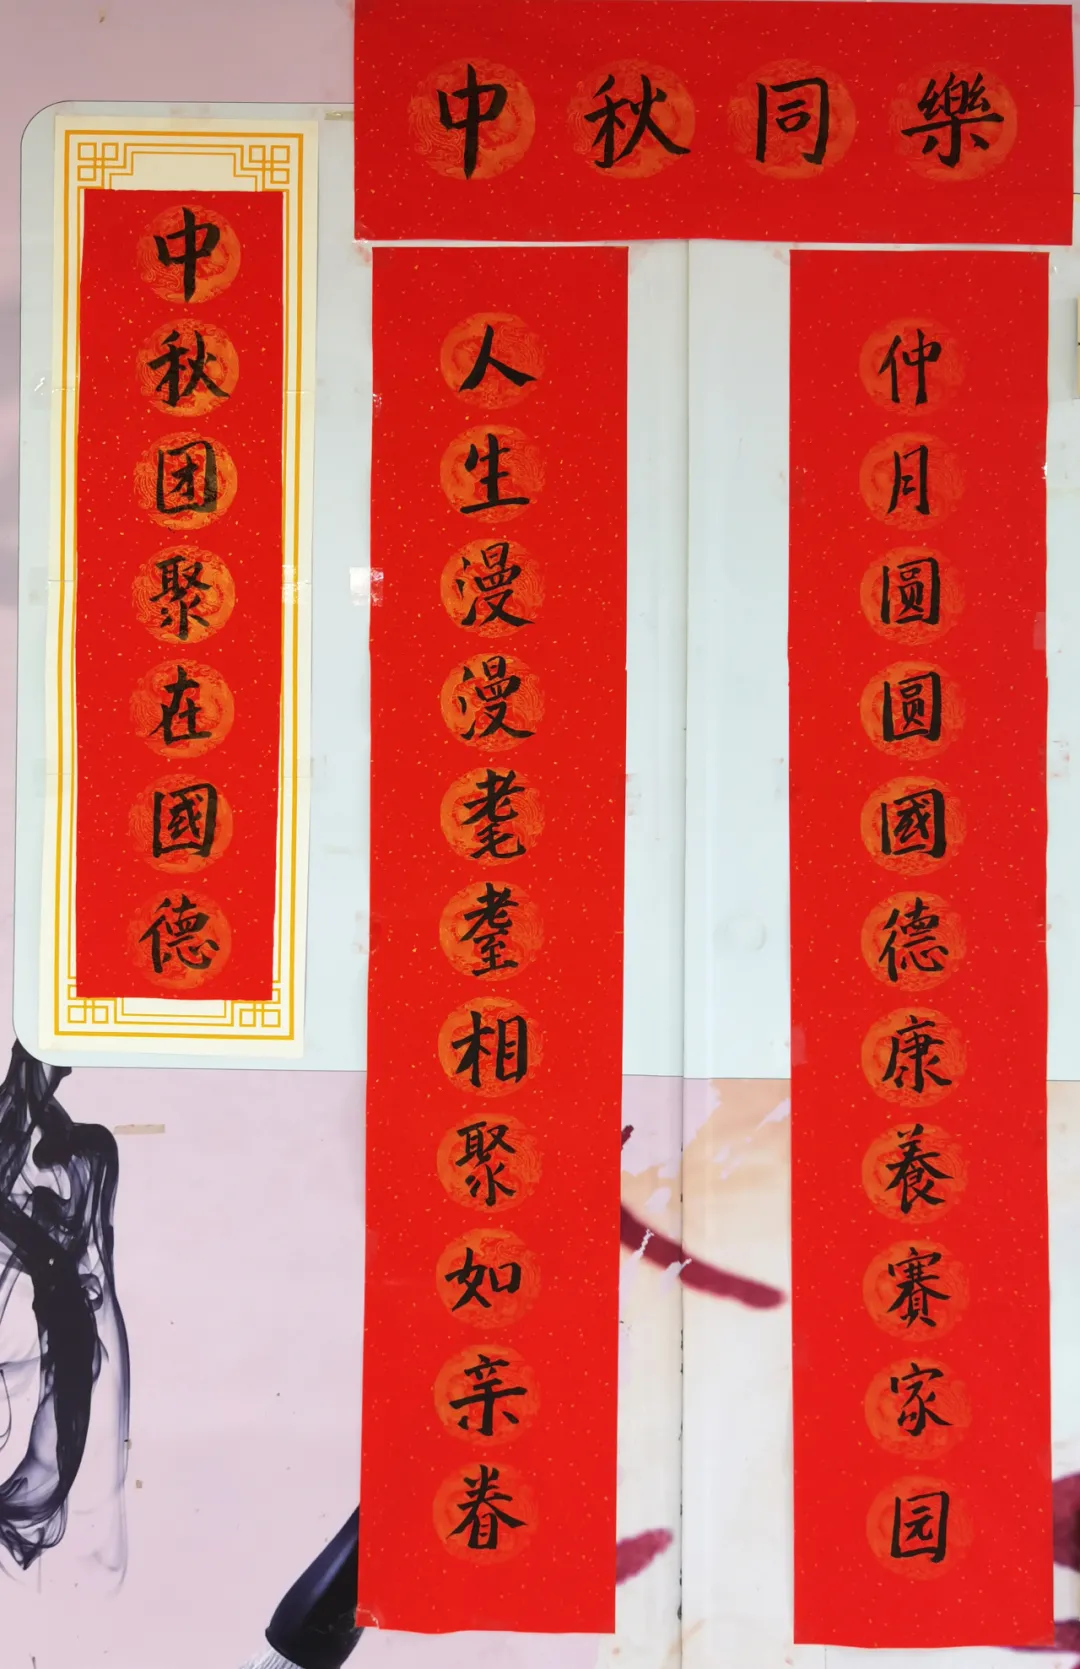 中秋同樂
中秋团聚在國德
人生漫漫耄耋相聚如亲眷
仲月圆圆國德康養賽家园